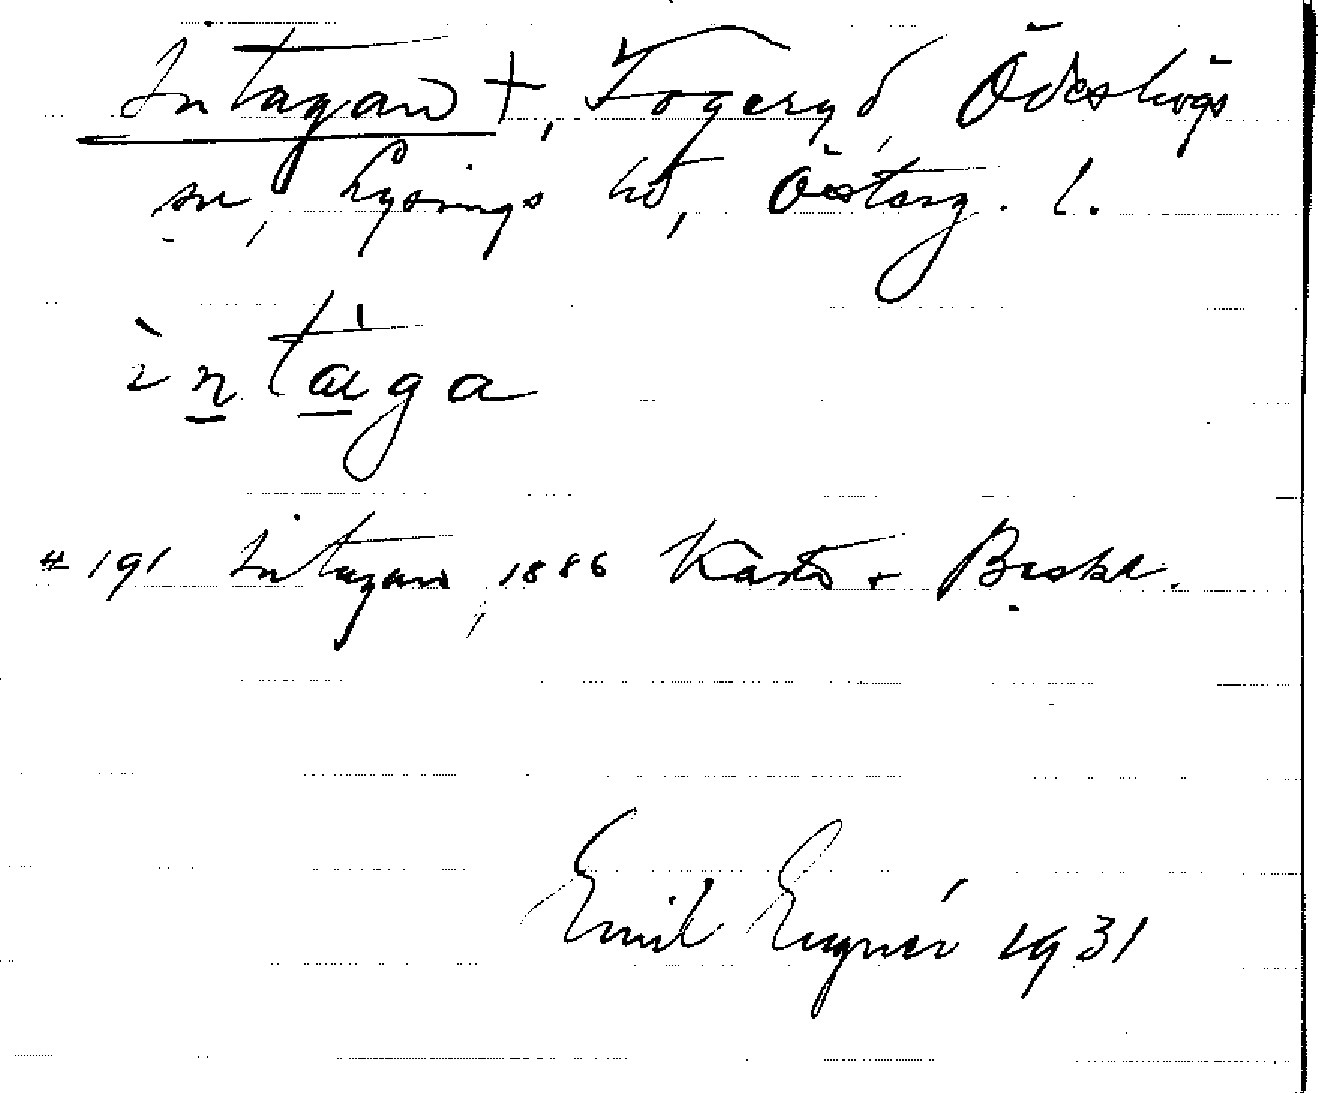 Intagan †, Fogeryd, Ödeshögs
sn, Lysings hd, Österg. l.
ìntà̀ga
# 191 Intagan, 1886 Karta + Beskr.
Emil Eugnér 1931